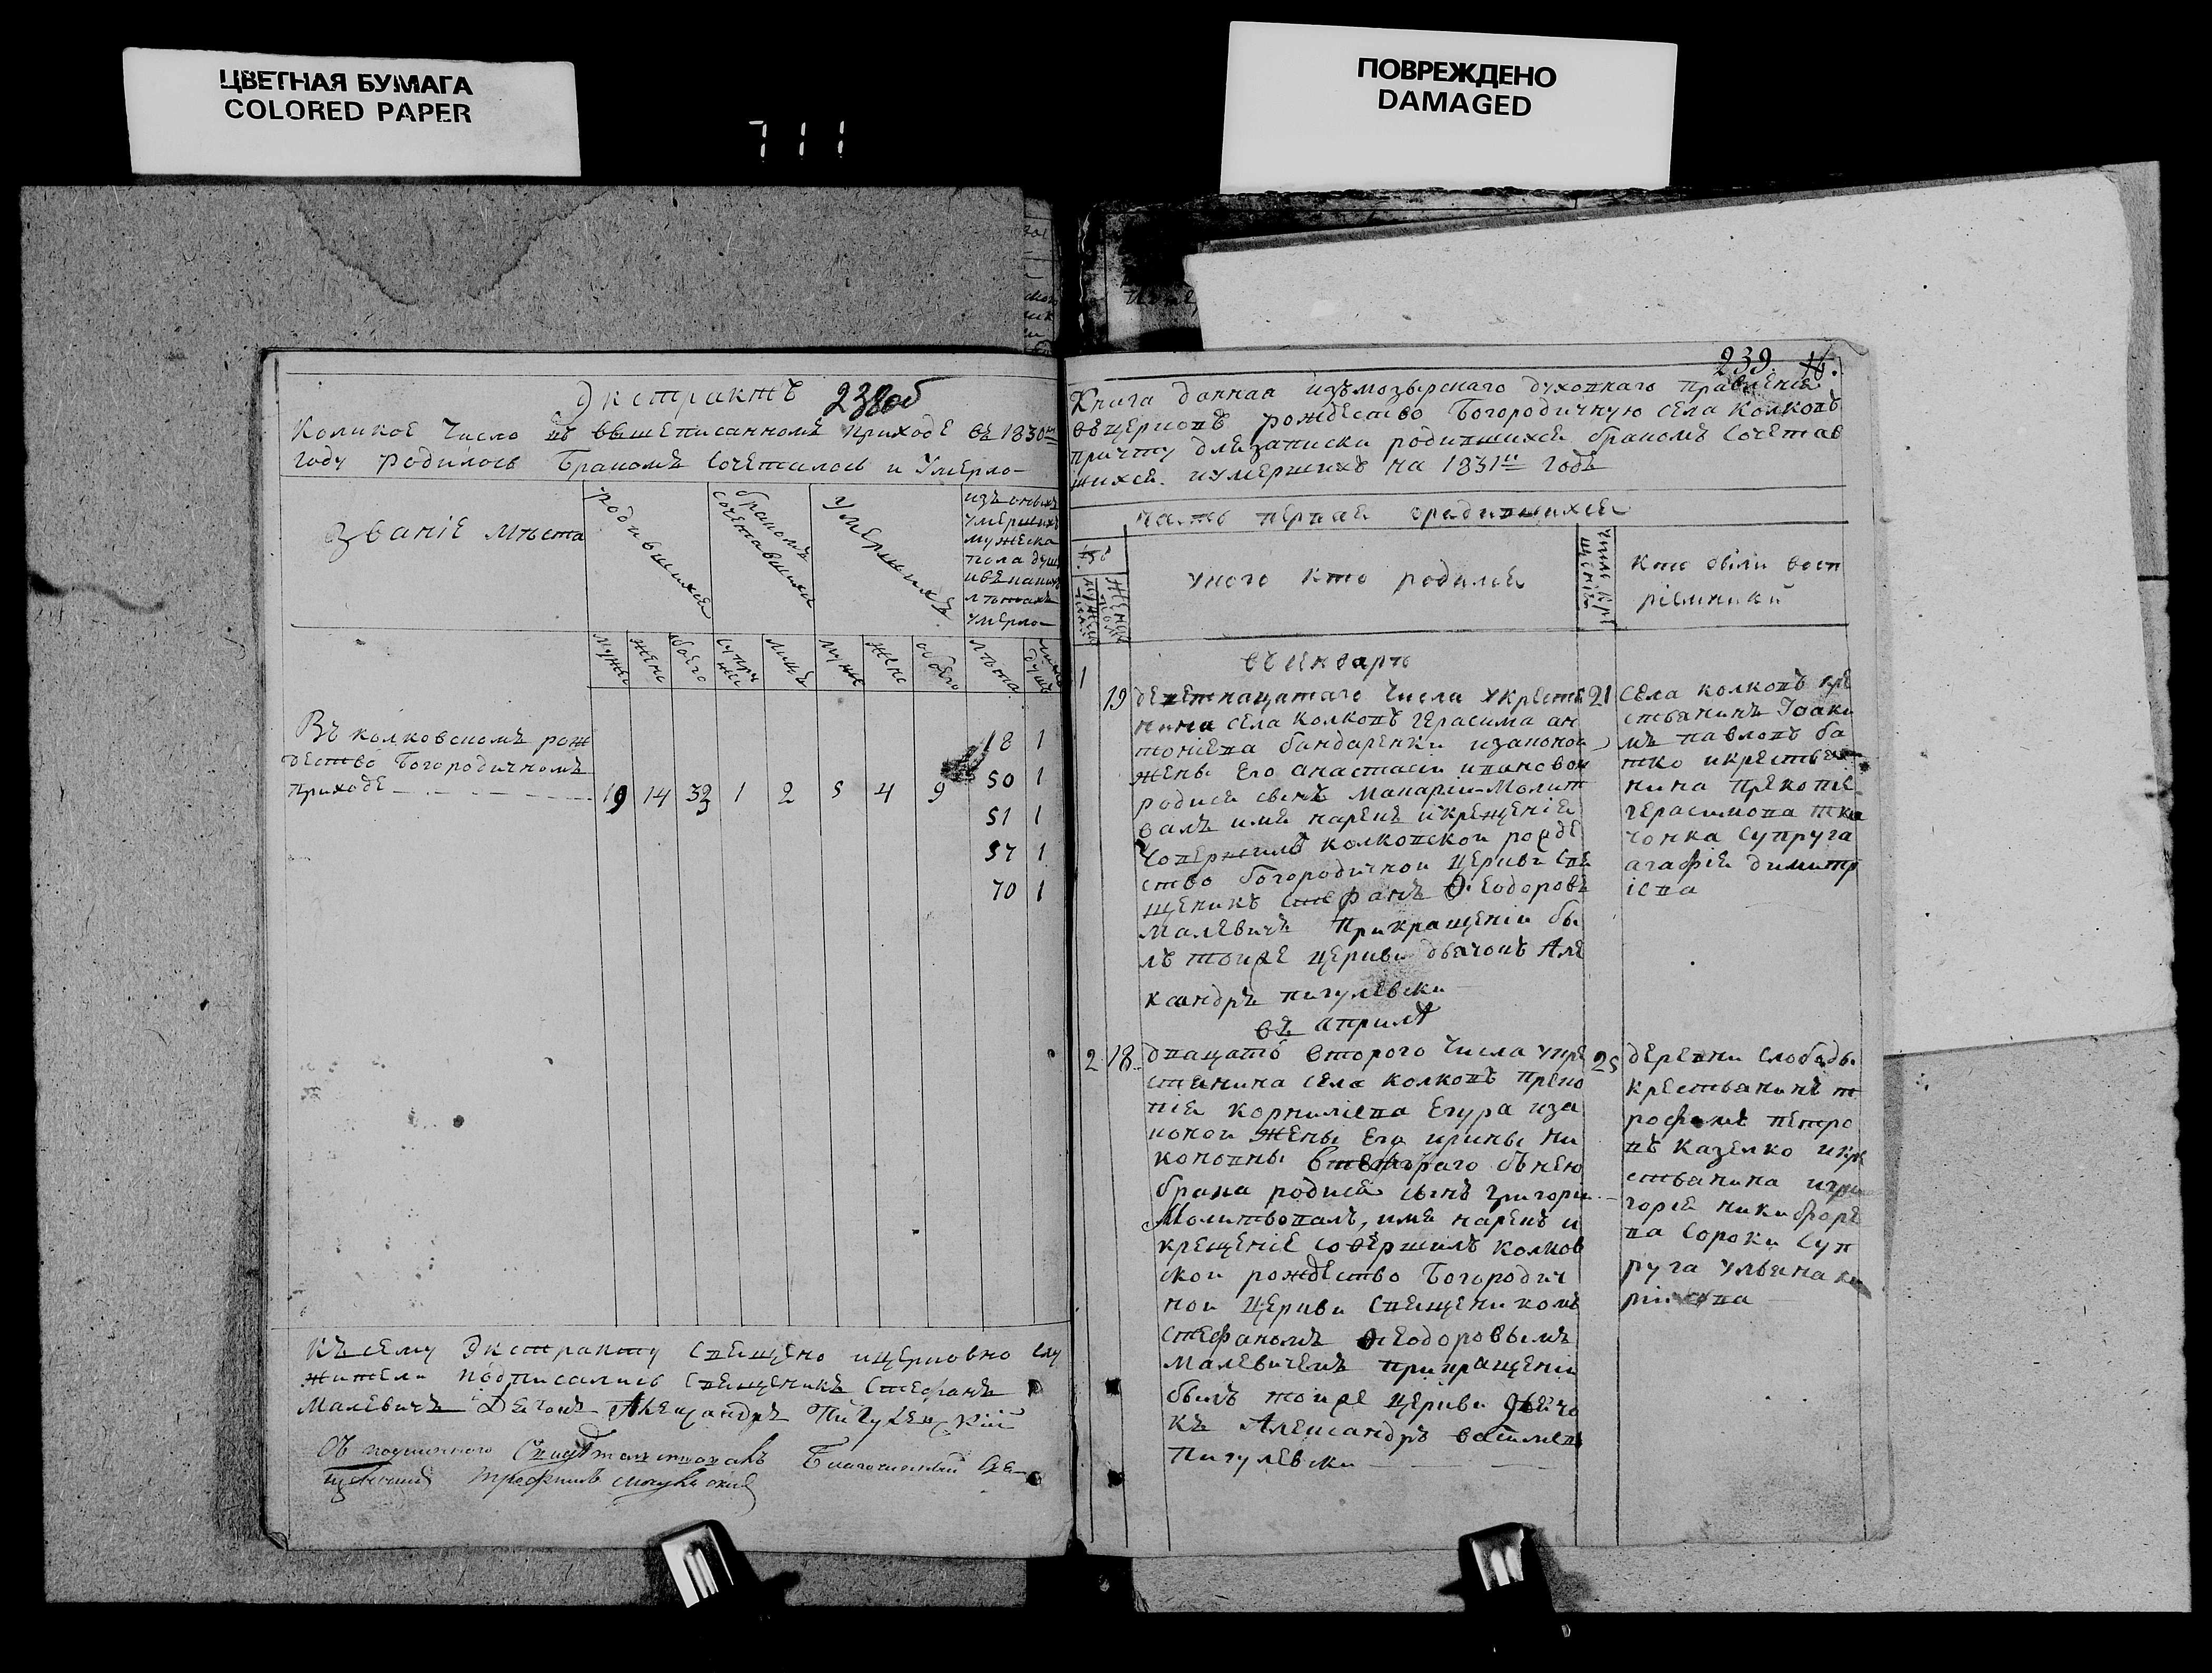 ЦВЕТНАЯ БУМАГА
COLORED PAPER
711
ПОВРЕЖДЕНО
DAMAGED
Экстрактъ 238об
Коликое число въ вышеписанномъ приходе въ 1830мъ
году родилось Бракомъ сочеталось и Умерло
Званіе мѣста
родившихся
бракомъ сочетавшихся
Умершихъ
изъ оныхъ
умершихъ
мужеска
пола душъ
и въ какихъ
лѣтахъ
умерло
муже
жене
обоего
супру
лицъ
муже
жене
обоего
лѣта
душъ
Въ колковскомъ рож
дество Богородичномъ
приходе 19 14 33 1 2 5 4 9
18 1
50 1
51 1
57 1
70 1
Къ сему Экстракту священо ицерковно слу
жители подписались священикъ Стефанъ
Малевичъ Дячокъ Александръ Пигулевскій
Благочинный
239.
Книга данная изъ мозырскаго духовнаго правленія
вцерковь рождество Богородичную села Колковъ
причту длязаписки родившихся бракомъ сочетав
шихся иумершихъ на 1831й годъ
часть первая ородившихся
укого кто родился
Кто были восп
ріемники
въ январѣ
1
19 деветнацатаго числа укрестя 21
нина села колковъ герасима ан
тонієва бандаренки изаконои
жены его анастасіи ивановои
родися сынъ Макарии Молит
валъ имя нарекъ икрещеніе
Совершилъ колковскои рожде
ство богородичнои церкви свя
щеникъ Стефанъ Ѳеодоровъ
Малевичъ Прикращеніи бы
лъ тоиже церкви дьячокъ Але
ксандръ пигулевски
Села колковъ кре
стьянинъ Іоаки
мъ павловъ ба
тко икрестья
нина прокопіе
герасимова тка
чонка супруга
агафіе димитр
іева
въ априлѣ
2 18 двацать второго числа укре 25
стянина села колковъ проко
піе корниліева Егура иза
коной жены Его ирины ни
коновны второго бънею
брака родися сынъ григори
Молитвовалъ, имя нарекъ и
крещеніе совершилъ колков
скои рождество Богородич
нои церкви священикомъ
стефаномъ Ѳеодоровымъ
малевичемъ прикращеніи
былъ тоиже церкви дьячо
къ Александръ василевъ
Пигулевски
деревни слободы
крестьянинъ т
рофимъ петро
въ казелко икре
стьянина игри
горіе никифоре
ва сороки суп
руга ульяна